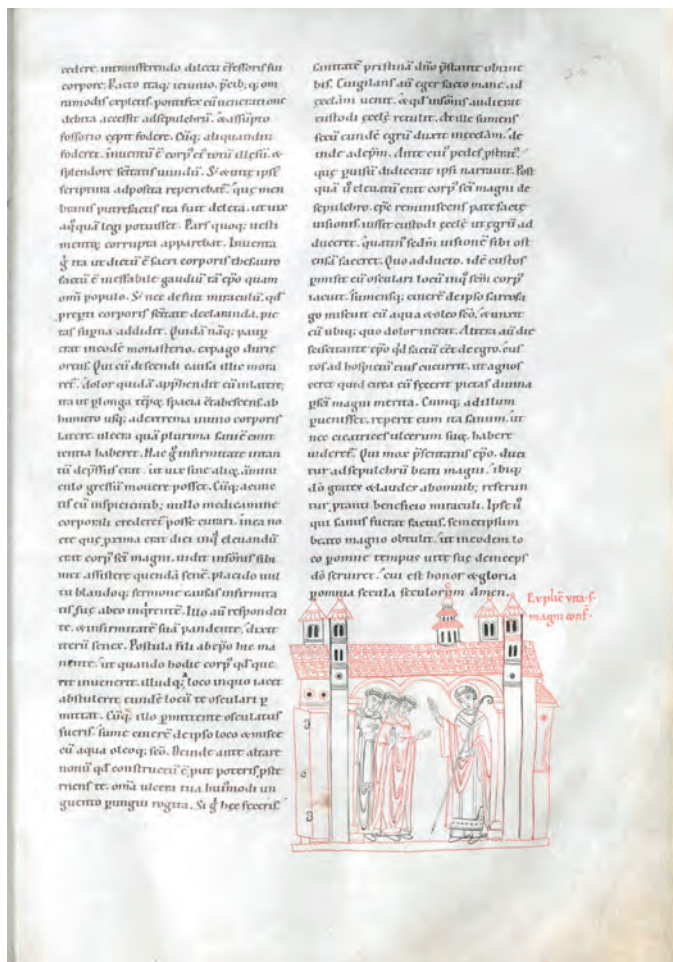 cedere. intransferendo dilecti c̄fessoris sui
corpore. Facto itaq; ieiunio. p̄cib; q; om
nimodis expletis. pontifex cū ueneratione
debita accessit adsepulchrū. & assūpto
fossorio cepit fodere. Cūq; aliquandiu
foderet. inuentū ē corp' ei' totū illesū. &
splendore sc̄itatis uiuidū. S; & utiq; ips̄e
scriptura adposita reperiebat'. que mem
branis putrefactis ita fuit deleta. ut uix
aq̄quā legi potuisset. Pars quoq; uesti
mentoꝝ corrupta apparebat. Inuenta
g̊ ita ut dictū ē sacri corporis thesauro
factū ē ineffabile gaudiū tā ep̄o quam
omi populo. S; nec defuit miraculū. qd
p̄ceperit corporis sc̄itate declaranda. pie
tas sup̄na addidit. Quidā nāq; paup̄
erat ineodē monasterio. expago durie
ortus. Qui cū discendi causa illic mora
ret'. dolor quidā app̄hendit eū inlatere;
ita ut ꝑlonga tēpoꝝ spacia c̄tabescens. ab
humero usq; adextrema in uno corporis
latere. ulcera quā plurima saniē emit
tentia haberet. Hac g̊ infirmitate intan
tū dep̄ssus erat. ut uix sine aliq̊ ammi
culo gressū mouere posset. Cūq; acunc
tis eū inspicientib; nullo medicamine
corporali crederet' posse curari. in ea no
cte que prima erat diei inq̊ eleuandū
erat corp' sc̄i magni. uidit insōnis sibi
met assistere quendā senē. placido uul
tu blandoq; sermone causas infirmita
tis suę abeo inq̇rentē. Illo aū responden
te. & infirmitatē suā pandente. dixit
iterū senex. Postula fili abep̄o hic ma
nente. ut quando hodie corp' qd que
rit inuenerit. illudq; loco inquo iacet
abstulerit. eundē locū te osculari ꝑ
mittat. Cūq; illo ꝑmittente osculatus
fueris. sume cinerē de ipso loco & misce
cū aqua oleoq; sc̄o. Deinde ante altare
nouū qd constructū ē. put poteris. pster
niens te. oma ulcera tua hui'modi un
guento ꝑungui rogita. Si g̊ hec feceris.
sanitatē pristinā dn̄o p̄stante obtine
bis. Euigilans aū eger facto mane. ad
ęcclam uenit. & qd insōnis audierat
custodi ęccle retulit. At ille sumens
secū eundē egrū duxit inęccłam. de
inde adep̄m. Ante cui' pedes pstrat'.
que ꝑuisū didicerat ipsi narrauit. Post
quā ū eleuatū erat corp' sc̄i magni de
sepulchro. ep̄c reminiscens patefacte
uisionis. iussit custodi ęccle ut egrū ad
duceret. quatin' scdm uisionē sibi ost
ensā faceret. Quo adducto. idē custos
ꝑmisit eū osculari locū inq̊ sc̄m corp'
iacuit. sumensq; cinerē de ipso sarcofa
go miscuit cū aqua & oleo sc̄o. & unxit
eū ubiq; quo dolor inerat. Altera aū die
sciscitante ep̄o qd factū eēt de egro. cus
tos ad hospiciū eius cucurrit. ut agnos
ceret quid circa eū fecerit pietas diuina
ꝑsc̄i magni merita. Cumq; adillum
ꝑuenisset. reperit eum ita sanum. ut
nec cicatrices ulcerum suoꝝ habere
uideret'. Qui mox p̄sentatus ep̄o. duci
tur adsepulchrū beati magni. ibiq;
dō grates & laudes abomnib; referun
tur. ꝑtanti beneficio miraculi. Ipse ū
qui sanus fuerat factus. semetipsum
beato magno obtulit. ut ineodem lo
co ꝑomne tempus uite suę deinceps
dō seruiret. cui est honor & gloria
ꝑomnia secula seculorum Amen.
Explic̄ uita s.
magni conf.